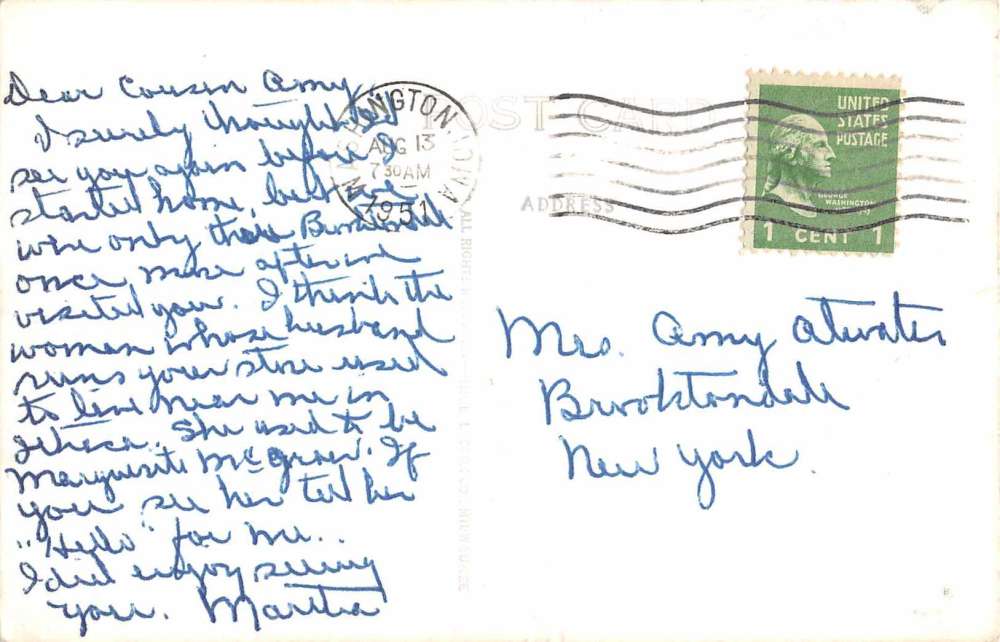 Dear Cousin Amy,
I surely thought I'd
see you again before I
started home, but we
were only thru Brooktondale
once more after we
visited you. I think the
woman whose husband
runs your store used
to live near me in
Ithaca. She used to be
Marguerite McGraw. If
you see her tell her
"Hello" for me..
I did enjoy seeing
you. Martha
WASHINGTON,
AUG 13
7 30 AM
1951
POST CARD
ADDRESS
UNITED
STATES
POSTAGE
GEORGE
WASHINGTON
1 CENT 1
Mrs. Amy Atwater
Brooktondale
New York.
ALL RIGHTS